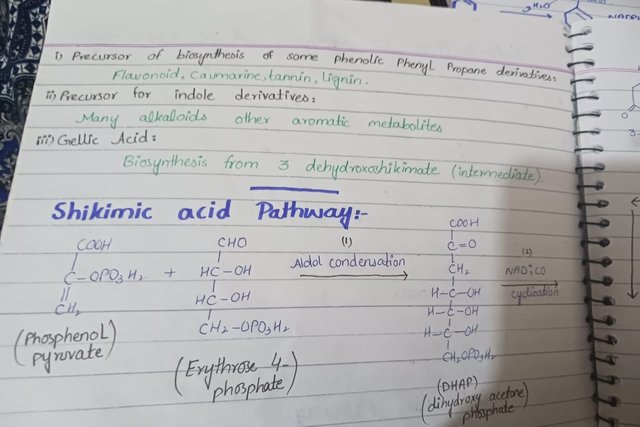 i) Precursor of biosynthesis of some phenolic Phenyl Propane derivatives:
Flavonoid, Caumarine, tannin, lignin.
ii) Precursor for indole derivatives:
Many alkaloids other aromatic metabolites
iii) Gellic Acid:
Biosynthesis from 3 dehydroxoshikimate (intermediate)
Shikimic acid Pathway:-
COOH
C-OPO3H2
CH2
(Phosphenol pyruvate)
+
CHO
HC-OH
HC-OH
CH2-OPO3H2
(Erythrose 4-phosphate)
(1)
Aldol condensation
COOH
C=O
CH2
H-C-OH
H-C-OH
H-C-OH
CH2OPO3H2
(DHAP)
(dihydroxy acetone phosphate
(2)
cyclication